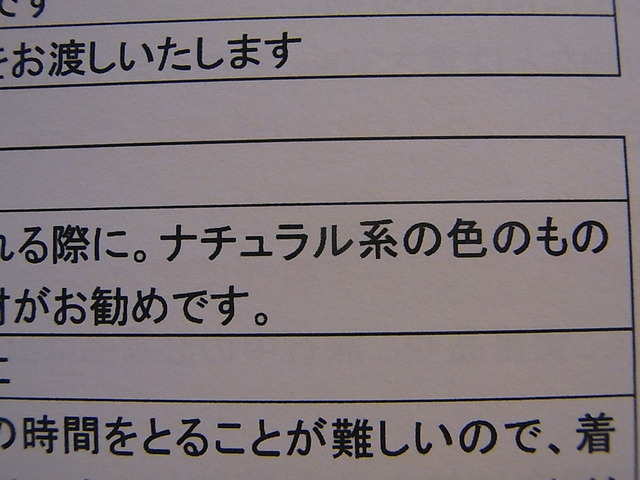 です
をお渡しいたします
れる際に。ナチュラル系の色のもの
材がお勧めです。
に
の時間をとることが難しいので、着